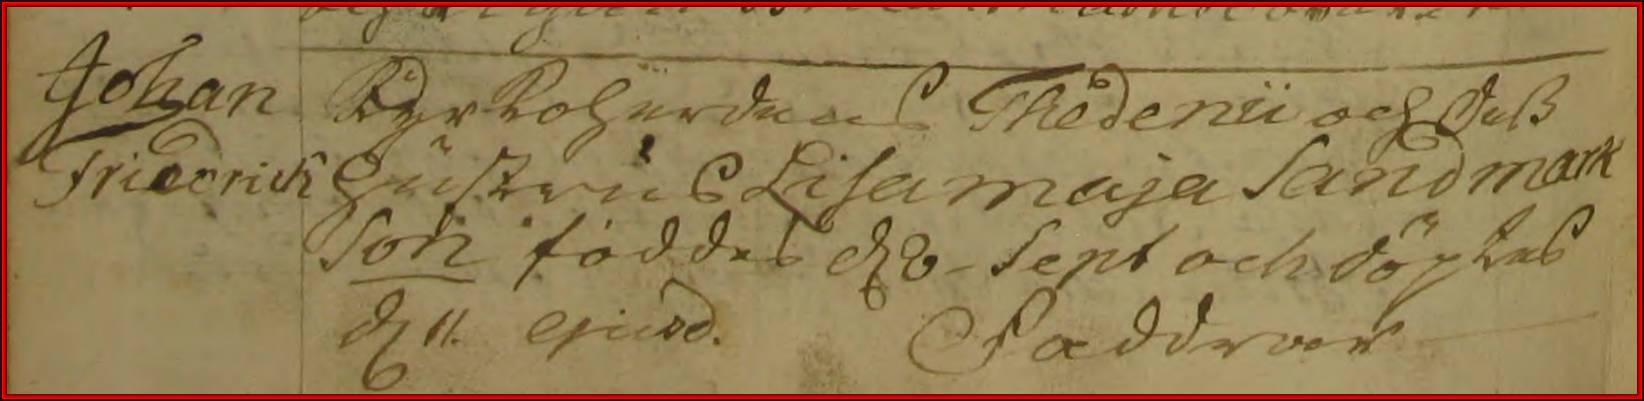 Johan
Friederick
Kyrkoherdens Thedenii och dess
Hustrus Lisa maja Sandmark
Son föddes d 8 - Sept och döptes
d 11. ejusd. Faddrar